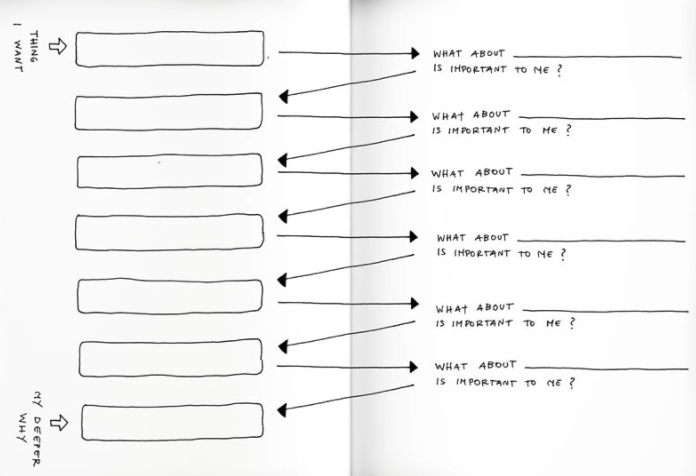 THING
I WANT
WHAT ABOUT
IS IMPORTANT TO ME ?
WHAT ABOUT
IS IMPORTANT TO ME ?
WHAT ABOUT
IS IMPORTANT TO ME ?
WHAT ABOUT
IS IMPORTANT TO ME ?
WHAT ABOUT
IS IMPORTANT TO ME ?
WHAT ABOUT
IS IMPORTANT TO ME ?
MY DEEPER
WHY